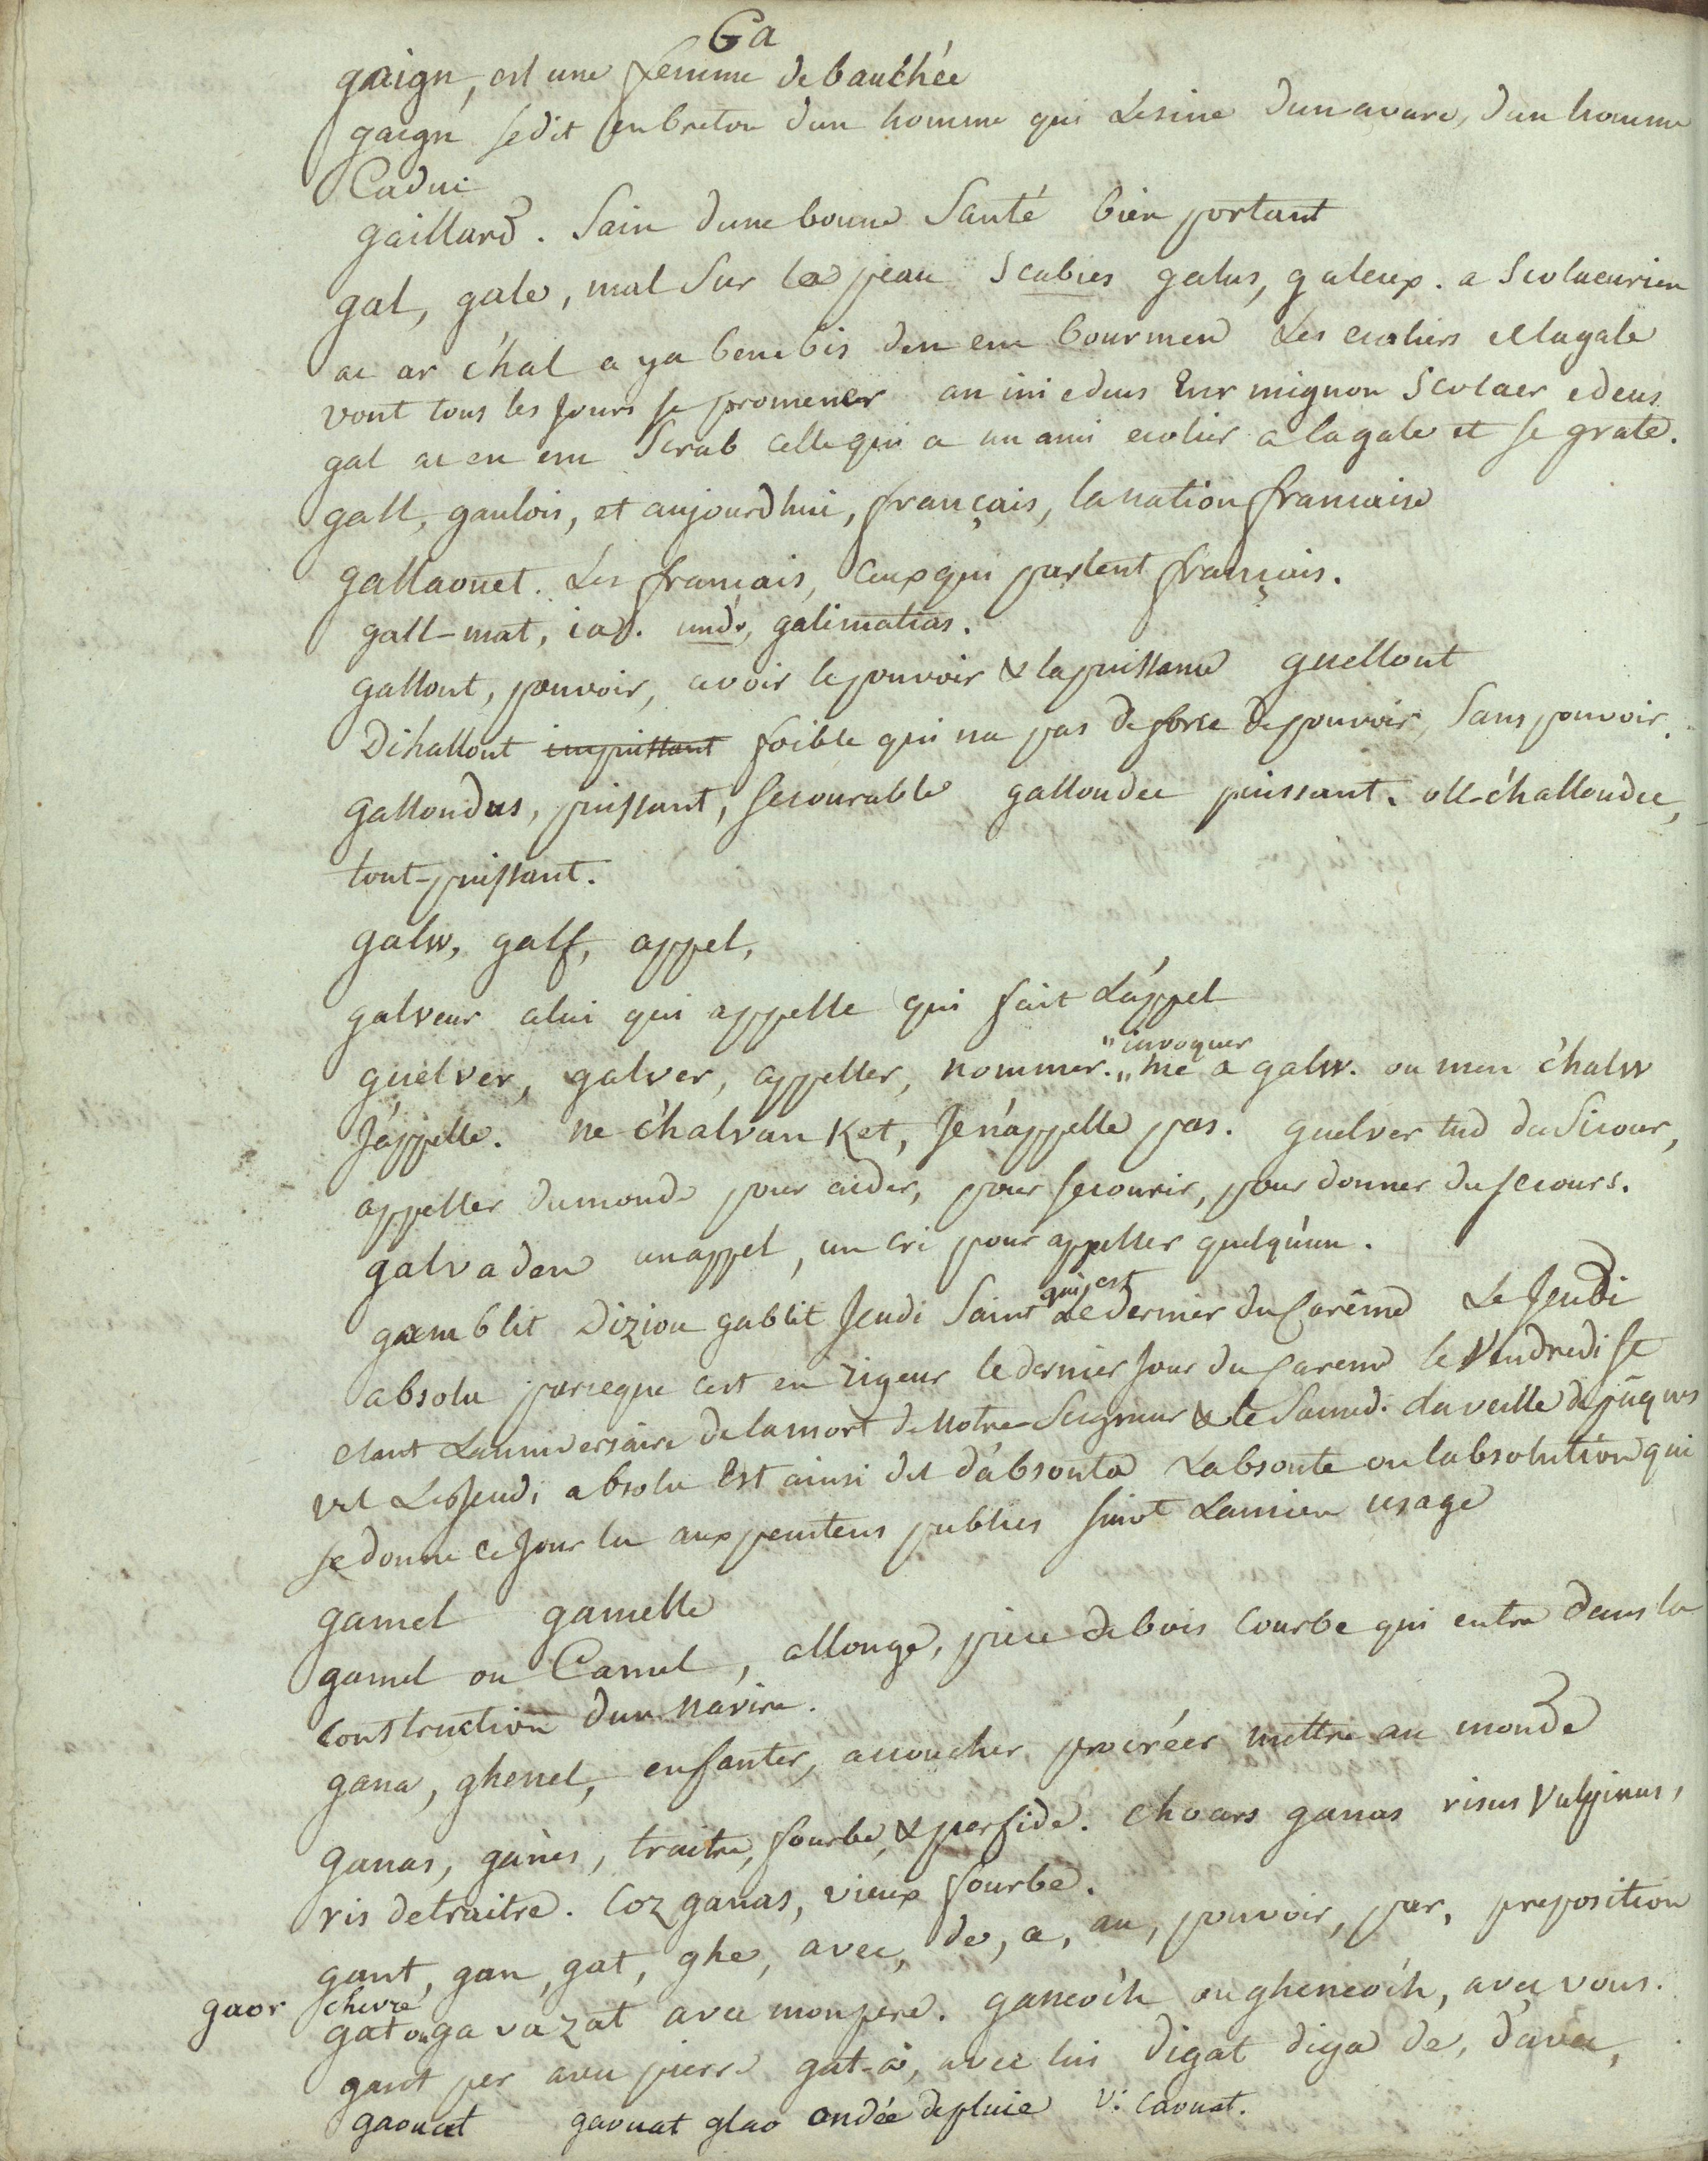 Ga
gaign, est une femme debauchée
gaign se dit en breton dun homme qui Lesine dun avare, dun homme
Caduc
gaillard. Sain dune bonne Santé bien portant
gal, gale, mal Sur la peau Scabies galus, galeux. a Scolaeurien
ac ar c'hal a ya bemdis den em bourmen Les ecoliers et la gale
vont tous les Jours se promener an ini edeus Eur mignon Scolaer edeus
gal ac en em Scrab celle qui a un ami ecolier a la gale et se grate.
gall, gaulois, et aujourdhui, français, la nation francaise
gallaouet. Les francais, Ceux qui parlent français.
gall-mat, iad. unde, galimatias.
gallout, pouvoir, avoir le pouvoir & la puissance guellout
Dihallout impuissant foible qui na pas de force de pouvoir, Sans pouvoir.
galloudus, puissant, secourable galloudec puissant. oll-c'halloudec,
tout-puissant.
galw, galf, appel,
galveur celui qui appelle qui fait L'appel
"invoquer
guelver, galver, appeller, nommer. „ me a galw. ou men c'halw
J'appelle. ne c'halvan Ket, Je n'appelle pas. guelver tud da Sicour,
appeller du monde pour aider, pour secourir, pour donner du secours.
galvaden un appel, un cri pour appeller quelqu'un.
qui est
gamblit Diziou gablit Jeudi Saint Le dernier du Carême Le Jeudi
absolu parceque cest en rigeur le dernier Jour du Careme le Vendredi St
etant Lanniversaire de la mort de Notre-Seigneur & le Samedi la veille de pâques
Le Jeudi absolu Est ainsi dit d'absoute Labsoute ou labsolution qui
se donne ce Jour la aux penitens publics suivt Lancien usage
gamel gamelle
gamel ou Camel, allonge, piece de bois Courbe qui entre dans la
Construction dun navire.
gana, ghenel, enfanter, accoucher procréer mettre au monde
ganas, ganès, traitre, fourbe, & perfide. choars ganas risus Vulpinus,
ris de traitre. Coz ganas, vieux fourbe.
gant, gan, gat, ghe, avec, de, a, au, pouvoir, par, preposition
gaor chevre
gat ou ga va zat avec mon pere. ganeoc'h ou gheneoc'h, avec vous.
gant per avec pierre gat-â, avec lui digat diga de, d'avec,
gaouat gaouat glao ondée de pluie V. Caouat.